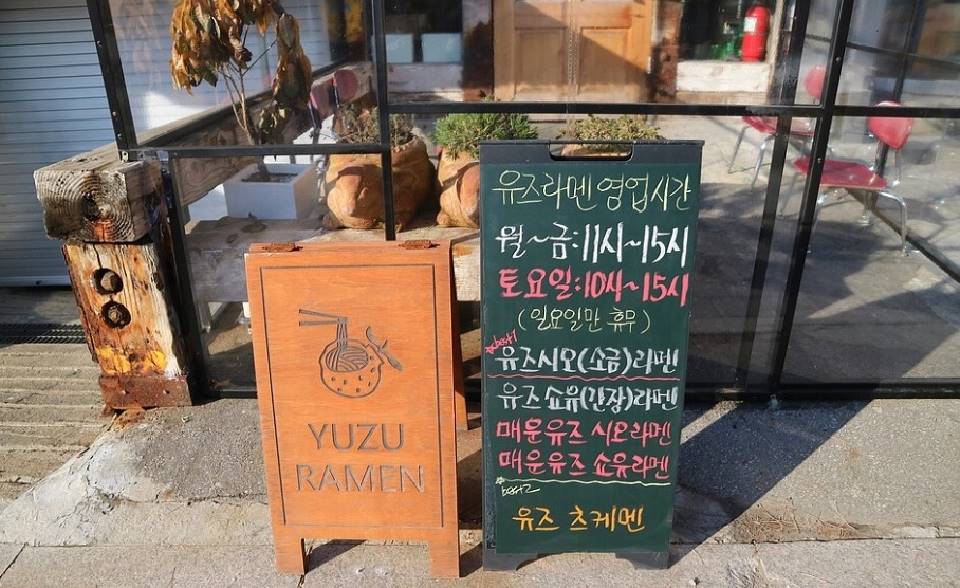 YUZU
RAMEN
유즈라멘 영업시간
월~금:11시~15시
토요일:10시~15시
(일요일만 휴무)
best1
유즈시오(소금)라멘
유즈 쇼유(간장)라멘
매운유즈 시오라멘
매운유즈 쇼유라멘
best2
유즈 츠케멘